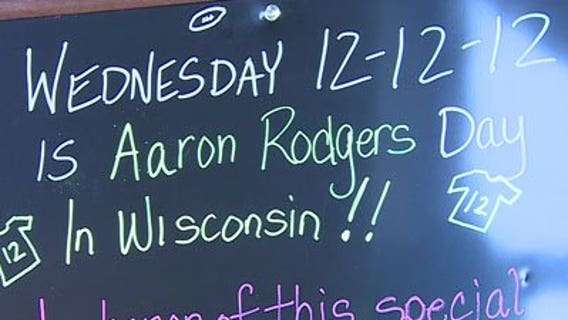 WEDNESDAY 12-12-12
IS Aaron Rodgers Day
12 In Wisconsin!! 12
honor of this special